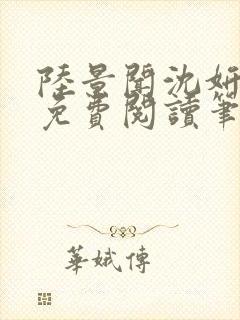 陸景聞沈妍
免費閱讀筆
華娥傳